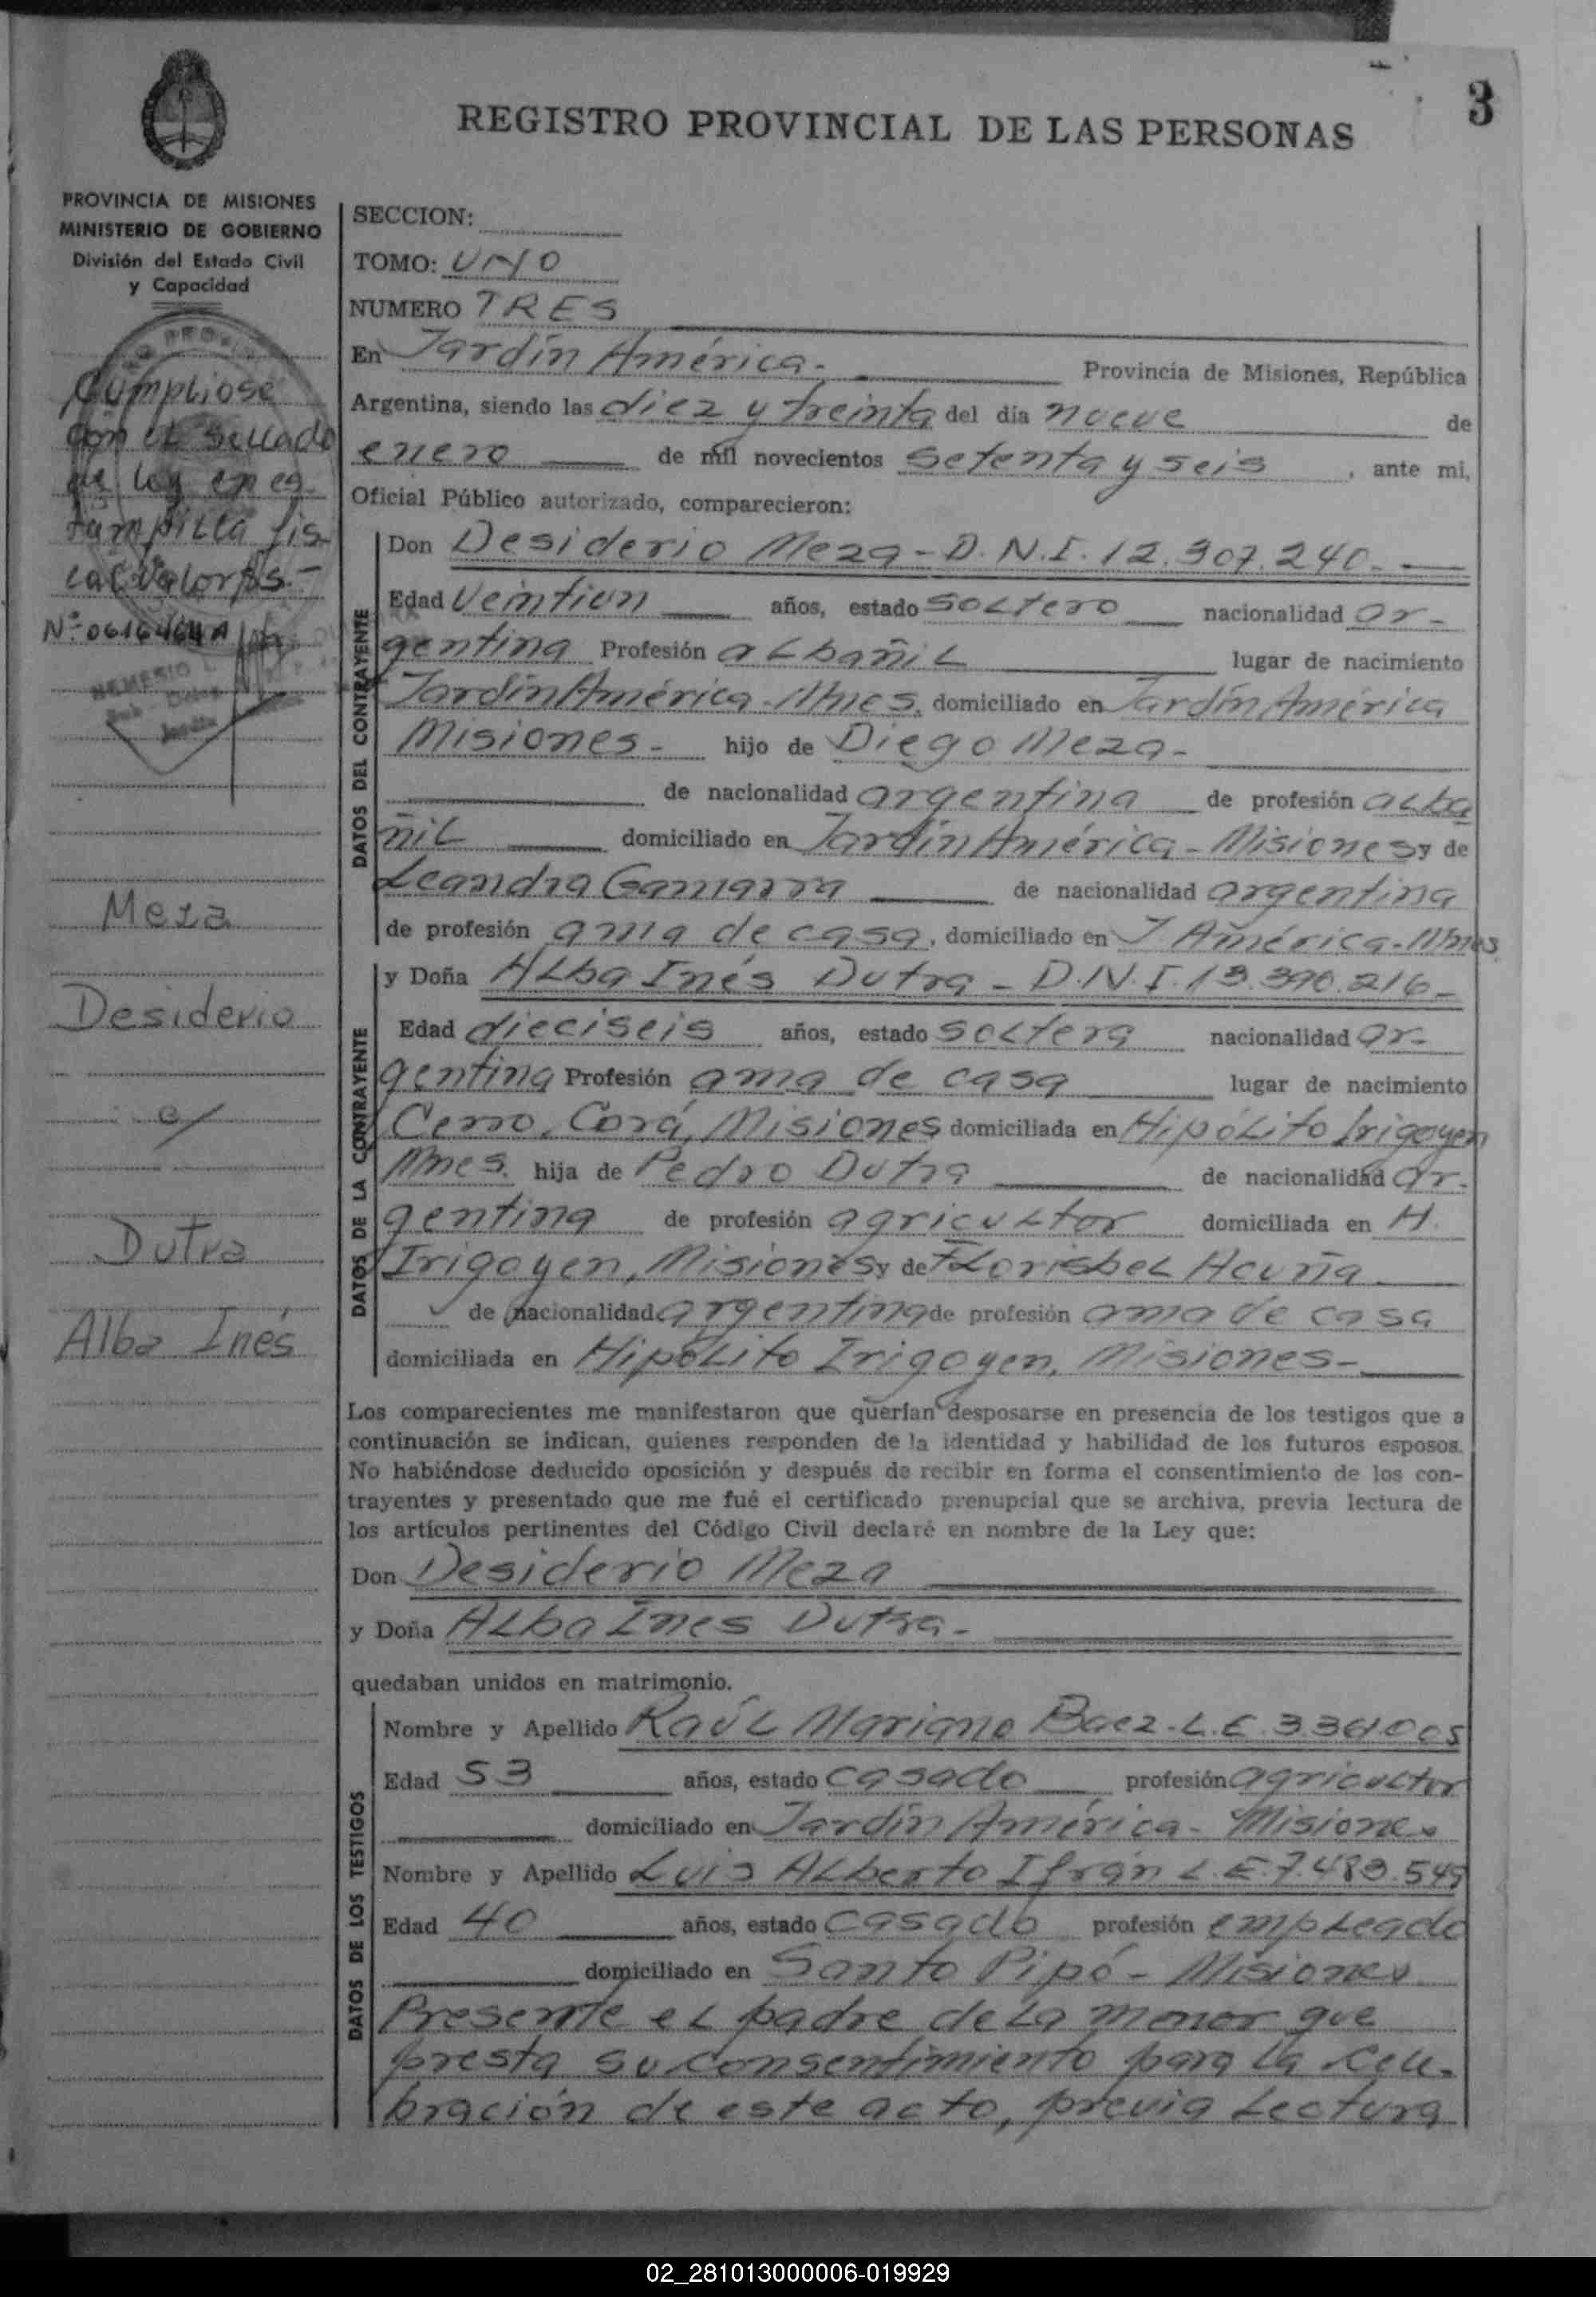 3
REGISTRO PROVINCIAL DE LAS PERSONAS
PROVINCIA DE MISIONES
MINISTERIO DE GOBIERNO
División del Estado Civil
y Capacidad
Cumpliose
con el sellado
de ley en es
tampilla fis
cal valor $s.-
Nº 0616464A
Meza
Desiderio
c/
Dutra
Alba Inés
SECCION:
TOMO: UNO
NUMERO TRES
En Jardín América.- Provincia de Misiones, República
Argentina, siendo las diez y treinta del día nueve de
enero de mil novecientos setenta y seis, ante mi,
Oficial Público autorizado, comparecieron:
DATOS DEL CONTRAYENTE
Don Desiderio Meza - D.N.I. 12.307.240.-
Edad Veintiun años, estado soltero nacionalidad ar-
gentina Profesión albañil lugar de nacimiento
Jardín América-Mnes, domiciliado en Jardín América
Misiones- hijo de Diego Meza-
de nacionalidad argentina de profesión alba
ñil domiciliado en Jardín América - Misiones y de
Leandra Gamarra de nacionalidad argentina
de profesión ama de casa, domiciliado en J América-Mnes
DATOS DE LA CONTRAYENTE
y Doña Alba Inés Dutra - D.N.I. 13.390.216-
Edad dieciseis años, estado soltera nacionalidad ar-
gentina Profesión ama de casa lugar de nacimiento
Cerro Corá, Misiones domiciliada en Hipólito Irigoyen
Mnes. hija de Pedro Dutra de nacionalidad ar-
gentina de profesión agricultor domiciliada en H.
Irigoyen, Misiones y de Florisbel Acuña
de nacionalidad argentina de profesión ama de casa
domiciliada en Hipólito Irigoyen, Misiones-
Los comparecientes me manifestaron que querían desposarse en presencia de los testigos que a
continuación se indican, quienes responden de la identidad y habilidad de los futuros esposos.
No habiéndose deducido oposición y después de recibir en forma el consentimiento de los con-
trayentes y presentado que me fué el certificado prenupcial que se archiva, previa lectura de
los artículos pertinentes del Código Civil declaré en nombre de la Ley que:
Don Desiderio Meza
y Doña Alba Ines Dutra-
quedaban unidos en matrimonio.
DATOS DE LOS TESTIGOS
Nombre y Apellido Raúl Mariano Baez-L.E. 3.361.005
Edad 53 años, estado casado profesión agricultor
domiciliado en Jardín América - Misiones
Nombre y Apellido Luis Alberto Ifrán L.E. 7.483.549
Edad 40 años, estado casado profesión empleado
domiciliado en Santo Pipó - Misiones
Presente el padre de la menor que
presta su consentimiento para la cele-
bración de este acto, previa lectura
02_281013000006-019929